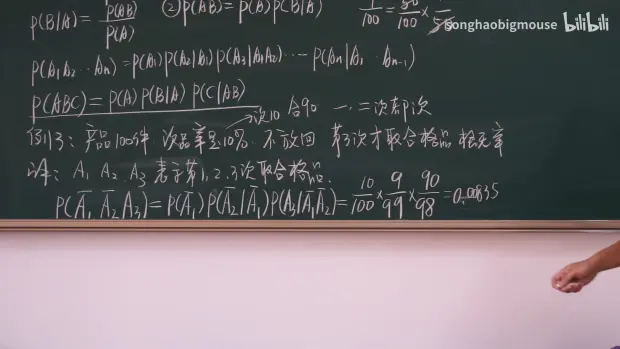 P(B|A) = P(AB)/P(A) ②P(AB)=P(A)P(B|A)
songhaobigmouse bilibili
P(A₁A₂…Aₙ)=P(A₁)P(A₂|A₁)P(A₃|A₁A₂)…P(Aₙ|A₁…Aₙ₋₁)
P(ABC)=P(A)P(B|A)P(C|AB)
次10 合90 一.二次都次
例13: 产品100件 次品率是10% 不放回 第3次才取合格品 概率
解: A₁ A₂ A₃ 表示第1,2,3次取合格品.
P(A̅₁A̅₂A₃)=P(A̅₁)P(A̅₂|A̅₁)P(A₃|A̅₁A̅₂)=10/100×9/99×90/98=0.00835